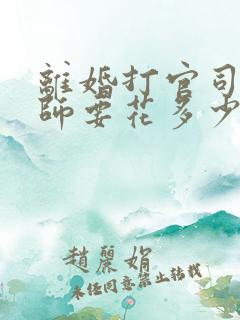 離婚打官司
師要花多少
趙麗娟
未任同意禁止转载